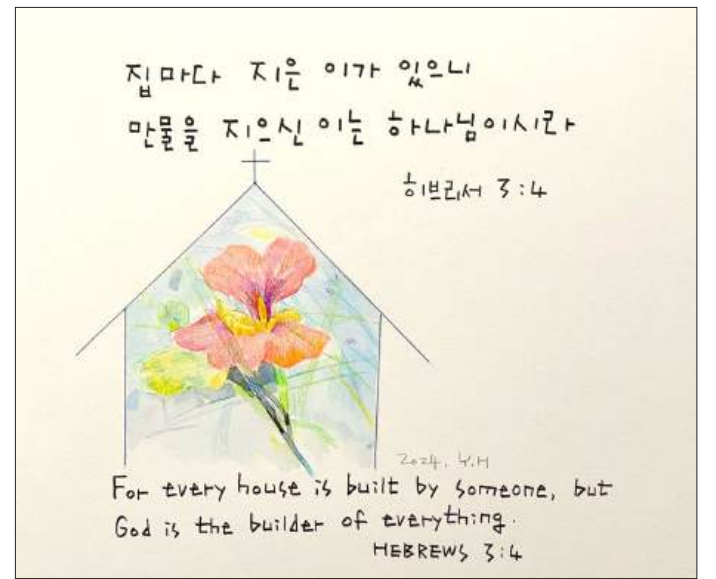 집마다 지은 이가 있으니
만물을 지으신 이는 하나님이시라
히브리서 3:4
2024. Y.H
For every house is built by someone, but
God is the builder of everything.
HEBREWS 3:4